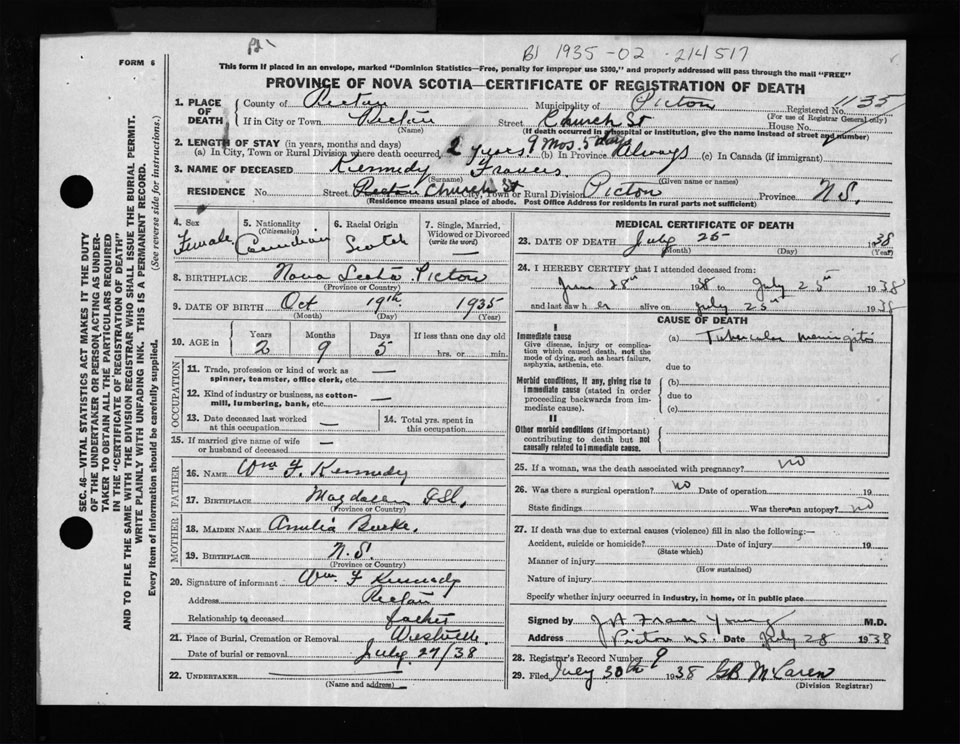 B1 1935-02-214517
FORM 6
This form if placed in an envelope, marked "Dominion Statistics—Free, penalty for improper use $300," and properly addressed will pass through the mail "FREE"
PROVINCE OF NOVA SCOTIA—CERTIFICATE OF REGISTRATION OF DEATH
1. PLACE OF DEATH
County of Pictou Municipality of Pictou Registered No. 1135
(For use of Registrar General only)
If in City or Town Pictou Street Church St House No.
(Name) (If death occurred in a hospital or institution, give the name instead of street and number)
2. LENGTH OF STAY (in years, months and days)
(a) In City, Town or Rural Division where death occurred, 2 years, 9 Mos. 5 days (b) In Province Always (c) In Canada (if immigrant)
3. NAME OF DECEASED Kennedy Frances
(Surname) (Given name or names)
RESIDENCE No. Street Pictou Church St City, Town or Rural Division Pictou Province N.S.
(Residence means usual place of abode. Post Office Address for residents in rural parts not sufficient)
4. Sex Female
5. Nationality (Citizenship) Canadian
6. Racial Origin Scotch
7. Single, Married, Widowed or Divorced (write the word) —
8. BIRTHPLACE Nova Scotia Pictou
(Province or Country)
9. DATE OF BIRTH Oct 19th 1935
(Month) (Day) (Year)
10. AGE in Years 2 Months 9 Days 5 If less than one day old
hrs. or min.
OCCUPATION
11. Trade, profession or kind of work as spinner, teamster, office clerk, etc. —
12. Kind of industry or business, as cotton-mill, lumbering, bank, etc. —
13. Date deceased last worked at this occupation —
14. Total yrs. spent in this occupation
15. If married give name of wife or husband of deceased —
FATHER
16. NAME Wm F. Kennedy
17. BIRTHPLACE Magdalen Isl.
(Province or Country)
MOTHER
18. MAIDEN NAME Amelia Burke
19. BIRTHPLACE N.S.
(Province or Country)
20. Signature of informant Wm F Kennedy
Address Pictou
Relationship to deceased father
21. Place of Burial, Cremation or Removal Westville
Date of burial or removal July 27/38
22. UNDERTAKER
(Name and address)
MEDICAL CERTIFICATE OF DEATH
23. DATE OF DEATH July 25 1938
(Month) (Day) (Year)
24. I HEREBY CERTIFY that I attended deceased from:
June 28th 1938 to July 25 1938
and last saw her alive on July 25th 1938
CAUSE OF DEATH
I
Immediate cause
Give disease, injury or complication which caused death, not the mode of dying, such as heart failure, asphyxia, asthenia, etc.
(a) Tubercular meningitis
due to
Morbid conditions, if any, giving rise to immediate cause (stated in order proceeding backwards from immediate cause).
(b)
due to
(c)
II
Other morbid conditions (if important) contributing to death but not causally related to immediate cause.
25. If a woman, was the death associated with pregnancy? no
26. Was there a surgical operation? no Date of operation 19
State findings Was there an autopsy? no
27. If death was due to external causes (violence) fill in also the following:—
Accident, suicide or homicide? Date of injury 19
(State which)
Manner of injury
(How sustained)
Nature of injury
Specify whether injury occurred in industry, in home, or in public place
Signed by J A Fraser Young M.D.
Address Pictou N.S. Date July 28 1938
28. Registrar's Record Number 9
29. Filed July 30th 1938 GB McLaren
(Division Registrar)
SEC. 46—VITAL STATISTICS ACT MAKES IT THE DUTY
OF THE UNDERTAKER OR PERSON ACTING AS UNDER-
TAKER TO OBTAIN ALL THE PARTICULARS REQUIRED
IN THE "CERTIFICATE OF REGISTRATION OF DEATH"
AND TO FILE THE SAME WITH THE DIVISION REGISTRAR WHO SHALL ISSUE THE BURIAL PERMIT.
WRITE PLAINLY WITH UNFADING INK. THIS IS A PERMANENT RECORD.
Every item of information should be carefully supplied. (See reverse side for instructions.)